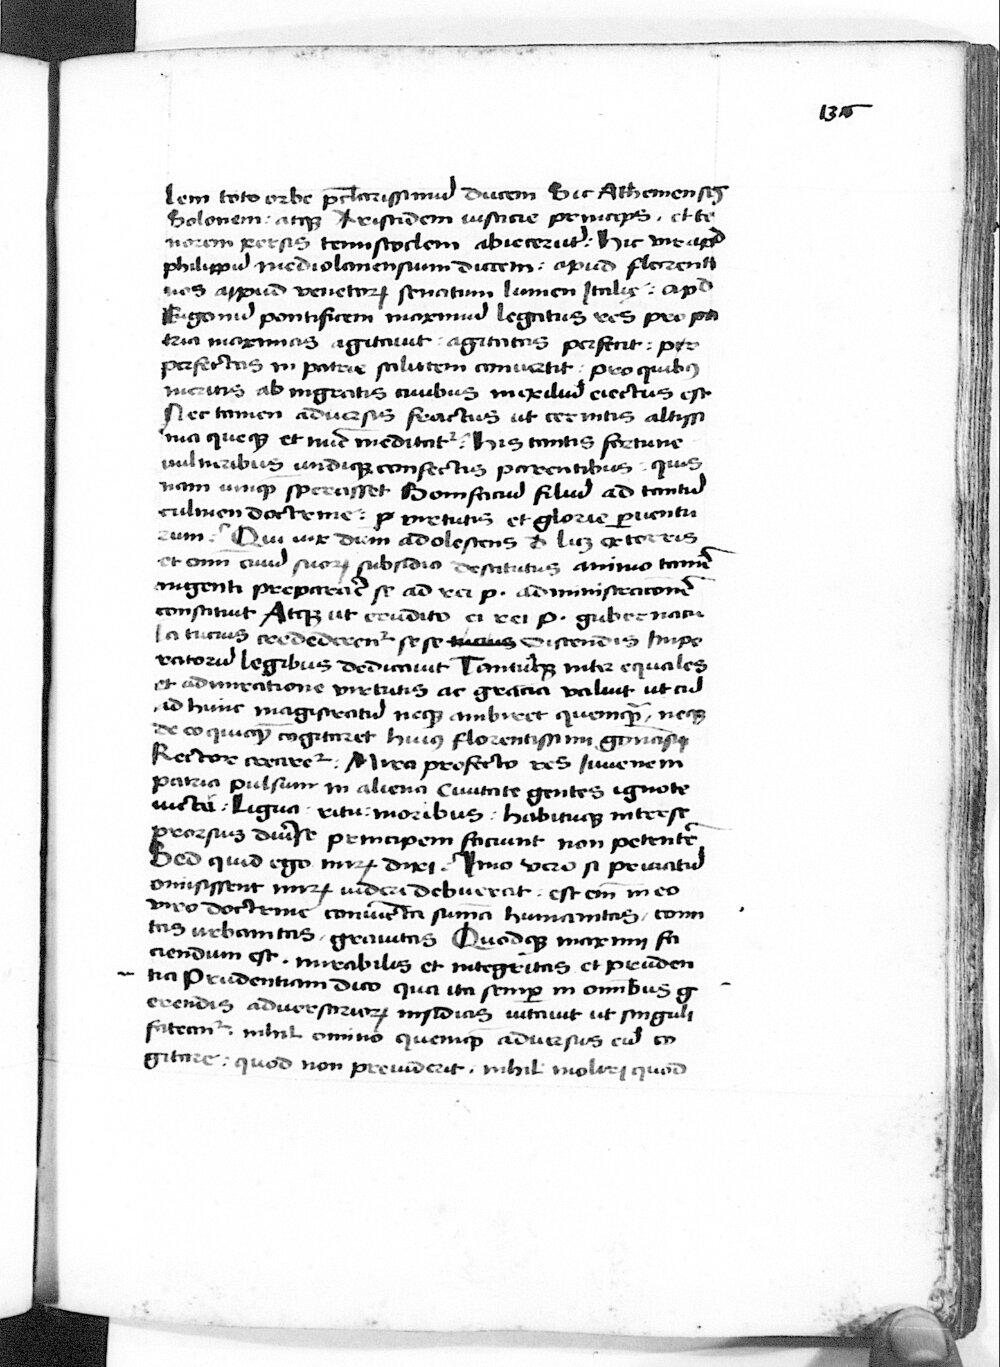 135
lem toto orbe p̄clarissimū ducem Sic Athenienses
Solonem : atqꝫ Aristidem iusticie princeps . et te
norem persis temistoclem abiecerūt : Hic vir apd̄
philippū mediolanensium ducem : apud florenti
nos appud venetorꝝ senatum lumen Italię : apd̄
Eugeniū pontificem maximū legatus res pro pa
tria maximas agitauit : agitatas perfecit : per
perfectas in patrie salutem conuertit : pro quibꝰ
meritis ab ingratis ciuibus in exiliū eiectus est
Nec tamen aduersis fractus ut cernitis altissi
ma queqꝫ et nūc meditatᵣ : His tantis fortune
vulneribus undiqꝫ confectis parentibus . quis
nam unqꝫ sperasset Bonifaciū filiū ad tantū
culmen doctrine : p virtutis et glorie ꝑuentu
rum : Qui vix dum adolescens
et omī ciuiū suorꝝ subsidio destitutus animo tamē
ingenti preparare se ad rei p . administrationē
constituit Atqꝫ ut erudito ei rei p . gubernacu
la tucius crederenᵣ sese tucius discendis Impe
ratoriū legibus dedicauit Tantūqꝫ inter equales
et admiratione virtutis ac gracia valuit ut cū
ad hunc magistratū neqꝫ ambiret quemqꝫ , neqꝫ
de eo quicqꝫ cogitaret huiꝰ florentissimi gymnasij
Rector crearetᵣ : Mira profecto res Iuuenem
patria pulsum in aliena Ciuitate gentes ignote
Ligua . ritu : moribus : habituqꝫ inter se
prorsus diuerse principem faciunt non petentē
Sed quid ego mirꝝ dixi : Imo vero si priuatū
omisissent mirꝝ videri debuerat : est enī in eo
viro doctrine coniuncta suma humanitas / comi
tas urbanitas , grauitas Quodqꝫ maximi fa
ciendum est . mirabilis et integritas et pruden
tia Prudentiam dico qua ita semp̄ in omībus g
erendis aduersariorꝝ insidias vitauit ut singuli
fateanᵣ . nihil omino quemqꝫ aduersus eū co
gitare : quod non preuiderit . nihil moliri quod